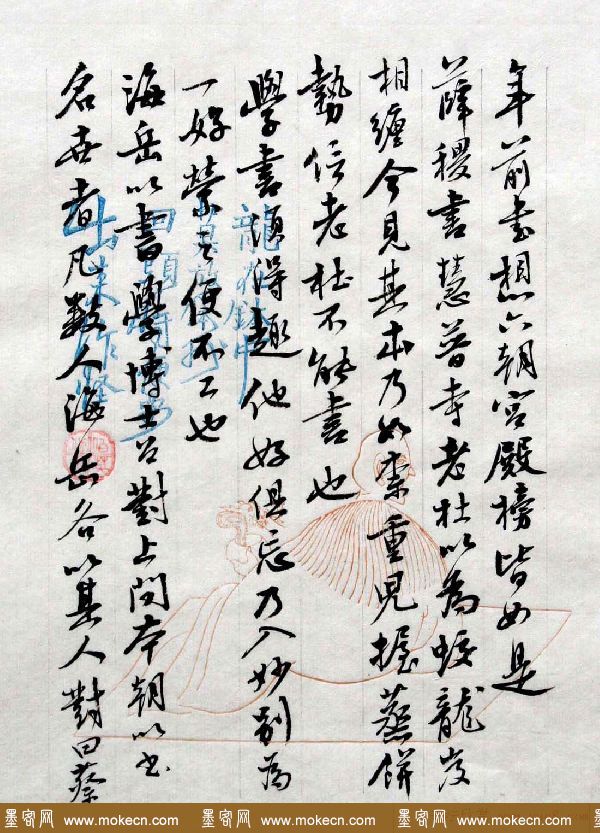 年前書想六朝宮殿榜皆如是
薛稷書慧普寺老杜以為蛟龍岌
相纏今見其本乃如柰重兒握蒸餅
勢信老杜不能書也
學書須得趣他好俱忘乃入妙別為
一好縈之便不工也
海岳以書學博士召對上問本朝以書
名世者凡數人海岳各以某人對曰蔡
墨客网 www.mokecn.com 墨客网 www.mokecn.com 墨客网 www.mokecn.com